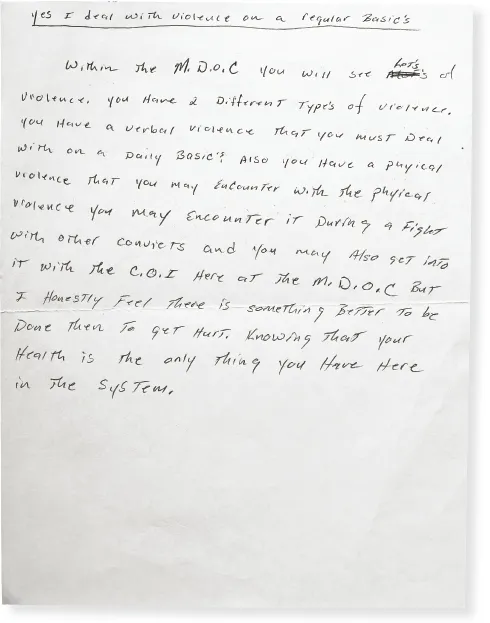 yes I deal with violence on a regular Basic's
Within the M.D.O.C you will see Lot's of
violence. you Have 2 Different Type's of violence.
you Have a verbal violence that you must Deal
with on a Daily Basic's. Also you Have a phyical
violence that you may Encounter with the phyical
violence you may Encounter it During a Fight
with other convicts and you may Also get into
it with the C.O.I Here at the M.D.O.C But
I Honestly Feel There is something Better to be
Done then To get Hurt. Knowing that your
Health is the only thing you Have Here
in the SysTem.